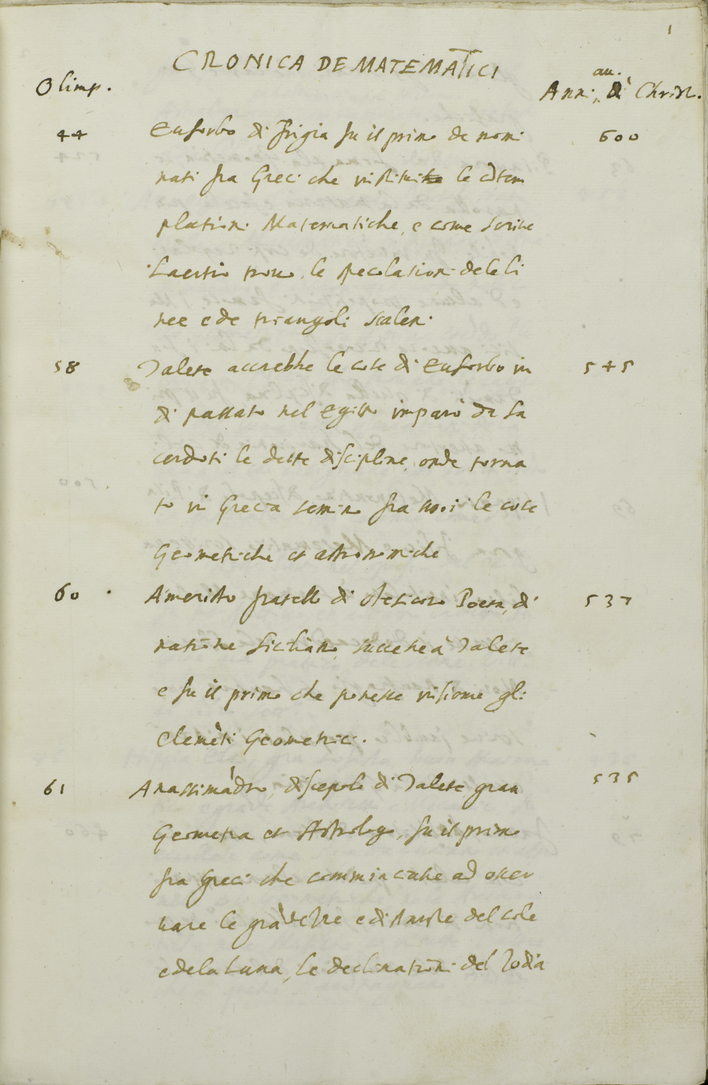 1
CRONICA DE MATEMATICI
Olimp.
an.
Ann: di Christ.
44 Euforbo di Frigia fu il primo de nomi 600
nati fra Greci che
le côtem
plationi Matematiche, e come scrive
Laertio trovò le specolationi dele li
nee e de triangoli scaleni.
58 Talete accrebbe le cose di Euforbo in 545
di passato nel Egitto imparò da Sa
cerdoti le dette discipline, onde torna
to in Grecia seminò fra suoi le cose
Geometriche et astronomiche
60 Ameristo fratello di Stesicoro Poeta, di 537
natione Siciliano, successe à Talete
e fu il primo che ponesse insieme gli
Elemêti Geometrici.
61 Anassimâdro, discepolo di Talete gran 535
Geometra et Astrologo, fu il primo
fra Greci che cominciasse ad osser
vare le grâdezze e distantie del sole
e dela Luna, le declinationi del Zodia